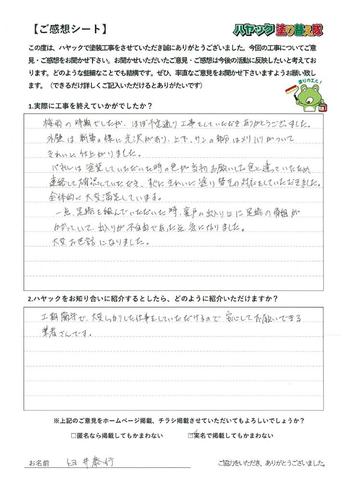 【ご感想シート】
ハヤック塗り替え隊
この度は、ハヤックで塗装工事をさせていただき誠にありがとうございました。今回の工事についてご意
見・ご感想をお聞かせ下さい。お聞かせいただいたご意見・ご感想は今後の活動に反映したいと考えてお
ります。どのような些細なことでも結構です。ぜひ、率直なご意見をお聞かせ下さいますようお願い致し
ます。（できるだけ詳しくご記入いただけるとありがたいです）
1.実際に工事を終えていかがでしたか？
梅雨の時期でしたが、ほぼ予定通り工事をしていただき ありがとうございました。
外壁は 新築の様に光沢があり、上下、サンの部はメリハリがついて
きれいに仕上がりました。
塗装していただいた時の色が当初お願いした色と違っていたため
連絡して確認していただき、すぐにきれいに塗り替えの対応をしていただきました。
全体的に大変満足しています。
一点、足場を組んでいただいた時、出入り口に足場の
がかかっていて、出入りが不自由であった
大変お世話になりました。
2.ハヤックをお知り合いに紹介するとしたら、どのように紹介いただけますか？
工期厳守で、大変しっかりした仕事をしていただけるので 安心してお願いできる
業者さんです。
※上記のご意見をホームページ掲載、チラシ掲載させていただいてもよろしいでしょうか？
□匿名なら掲載してもかまわない
☑実名で掲載してもかまわない
お名前
ご協力をいただき、ありがとうございました。